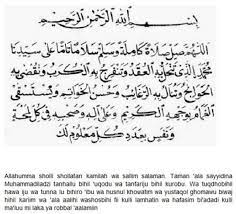 بسم الله الرحمن الرحيم
اللهم صل صلاة كاملة وسلم سلاما تاما على سيدنا
محمد الذي تنحل به العقد وتنفرج به الكرب وتقضى به
الحوائج وتنال به الرغائب وحسن الخواتم ويستسقى
الغمام بوجهه الكريم وعلى آله وصحبه في كل لمحة
ونفس بعدد كل معلوم لك
Allahumma sholli shollafan kamilah wa salim salaman. Taman 'ala sayyidina
Muhammadiladzi tanhallu bihil 'uqodu wa tanfariju bihil kurobu. Wa tuqdhobihil
hawa iju wa tunna lu bihiro 'ibu wa husnul khouwatim wa yustaqol ghomawu biwaj
hihil karim wa 'ala aalihi washosbihi fii kulli lamhatin wa hafasim bi'dadi kulli
ma'luu mi laka ya robbal 'aalamiin